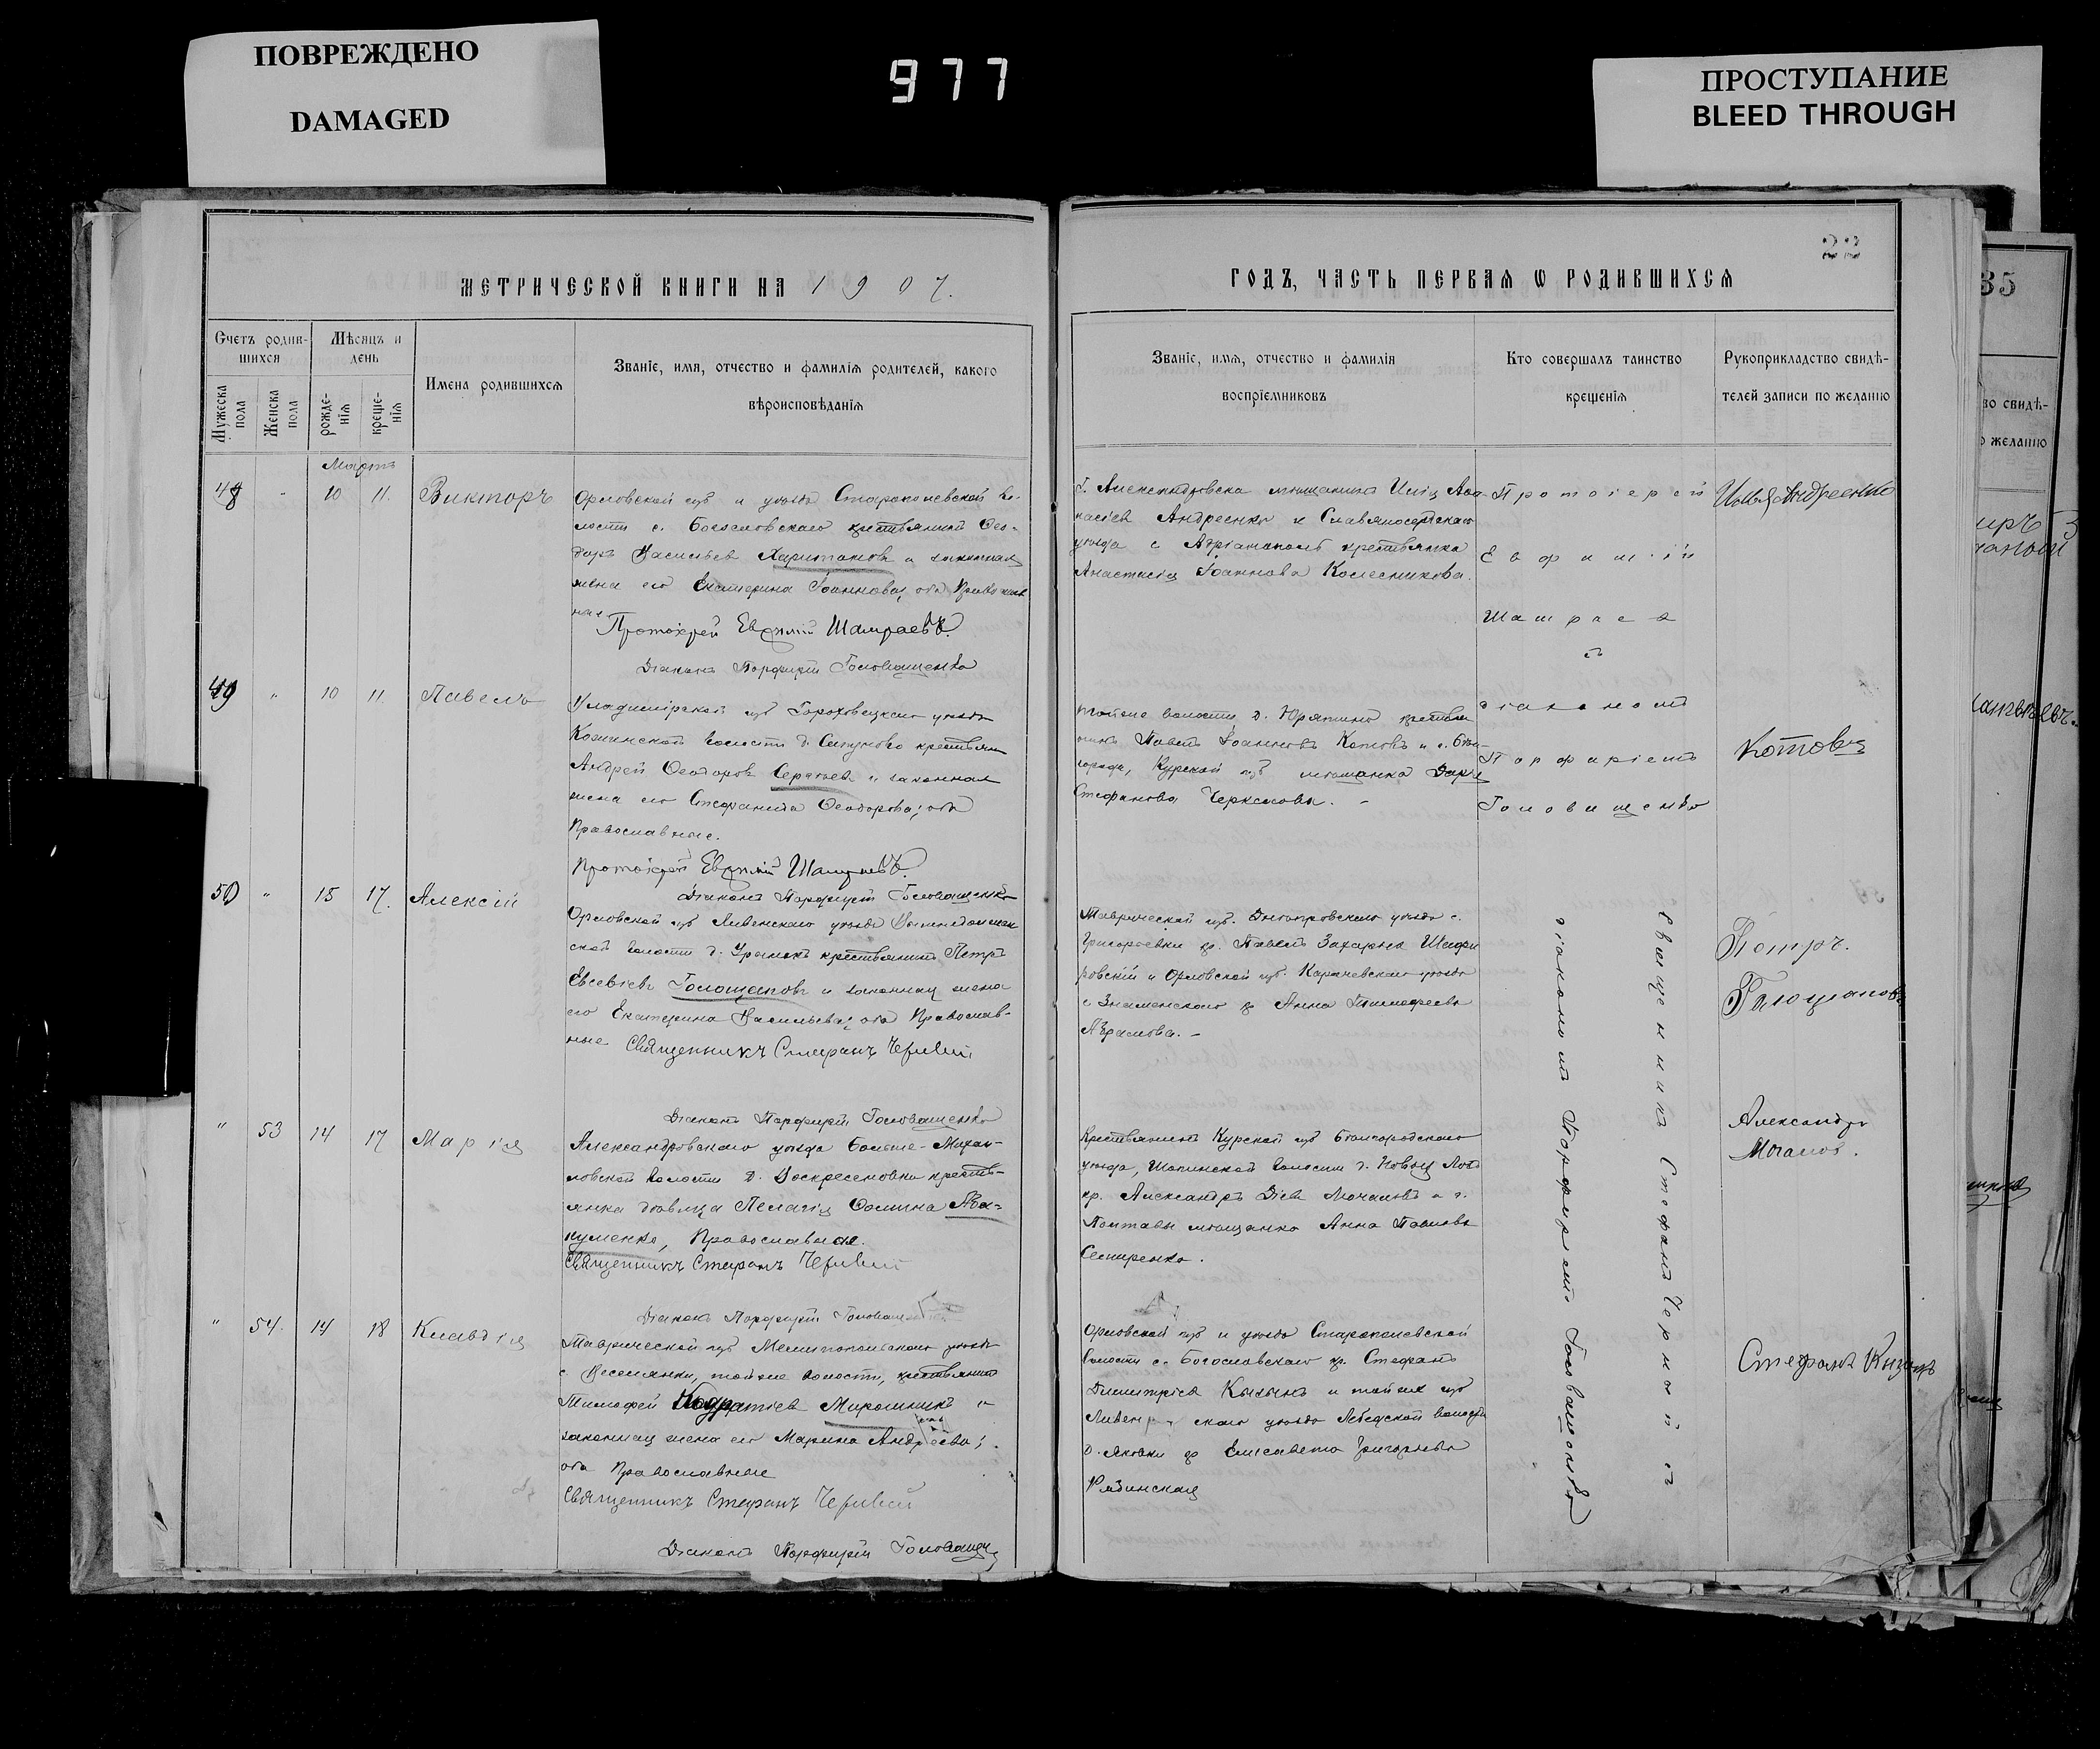 ПОВРЕЖДЕНО
DAMAGED
977
ПРОСТУПАНИЕ
BLEED THROUGH
22
35
МЕТРИЧЕСКОЙ КНИГИ НА 1907.
ГОДЪ, ЧАСТЬ ПЕРВАЯ Ѡ РОДИВШИХСЯ
Счетъ родив-
шихся
Мѣсяцъ и
день
Мужеска
пола
Женска
пола
рожде-
нія
креще-
нія
Имена родившихся
Званіе, имя, отчество и фамилія родителей, какого
вѣроисповѣданія
Званіе, имя, отчество и фамилія
воспріемниковъ
Кто совершалъ таинство
крещенія
Рукоприкладство свидѣ-
телей записи по желанію
во свидѣ-
о желанію
Мартъ
48 " 10 11. Викторъ
Орловской губ и уѣзда Старополевской во-
лости с. Богословскаго крестьянинъ Ѳео-
доръ Васильевъ Харитановъ и законная
жена его Екатерина Іоаннова, оба Православ
ные
Протоіерей Евѳимій Шамраевъ.
Діаконъ Порфирій Головащенко
Г. Александровска мѣщанинъ Илія Аѳа-
насіевъ Андреенко и Славяносербскаго
уѣзда с Адріанополь крестьянка
Анастасія Іоаннова Колесникова.
Протоіерей
Евфимій
Шамраевъ
съ
діакономъ
Порфиріемъ
Головащенко
Илья Андреенко
49 " 10 11 Павелъ
Владимірской губ Гороховецкаго уѣзда
Кожинской волости д. Сапуново крестьян
Андрей Ѳеодоровъ Сергѣевъ и законная
жена его Стефанида Ѳеодорова; оба
Православные.
Протоіерей Евѳимій Шамраевъ.
Діаконъ Порфирій Головащенко
тойже волости, д. Юрятино крестья
нинъ Павелъ Іоанновъ Котовъ и г. Бѣл-
города, Курской губ мѣщанка Дарія
Стефанова Черкасова. -
Котовъ
50 " 15 17. Алексій
Орловской губ Ливенскаго уѣзда
ской волости д. крестьянинъ Петръ
Евсевіевъ Голощаповъ и законная жена
его Екатерина Васильева; оба Православ-
ные Священникъ Стефанъ Черный
Діаконъ Порфирій Головащенко
Таврической губ. Днѣпровскаго уѣзда с.
Григорьевки кр. Павелъ Захарьевъ
ровскій и Орловской губ. Карачевскаго уѣзда
с Знаменскаго кр Анна Тимоѳеева
Абрамова. -
Священникъ Стефанъ Черный съ
діакономъ Порфиріемъ Головащенко
Петръ.
Галощаповъ
" 53 14 17 Марія
Александровскаго уѣзда Больше-Михай-
ловской волости д. Воскресеновки кресть-
янка дѣвица Пелагія Ѳомина Аба-
куменко, Православная.
Священникъ Стефанъ Черный
Діаконъ Порфирій Головащенко
Крестьянинъ Курской губ Бѣлгородскаго
уѣзда, Шопинской волости д. Новой
кр. Александръ Діевъ Мочаловъ и г.
Полтавы мѣщанка Анна Павлова
Семиренко.
Александръ
Мочалов.
" 54. 14 18 Клавдія
Таврической губ Мелитопольскаго уѣзда
с Веселянки, тойже волости, крестьянинъ
Тимоѳей Кодратіевъ Мирошникъ и
законная жена его Марина Андреева;
оба Православные
Священникъ Стефанъ Черный
Діаконъ Порфирій Головащ
Орловской губ и уѣзда Старопелевской
волости с. Богословскаго кр. Стефанъ
Димитріевъ Кызынъ и тойже губ
Ливен скаго уѣзда Лебедской волости
д. Яковки кр Елисавета Григорьева
Рябинская
Стефанъ Кызынъ